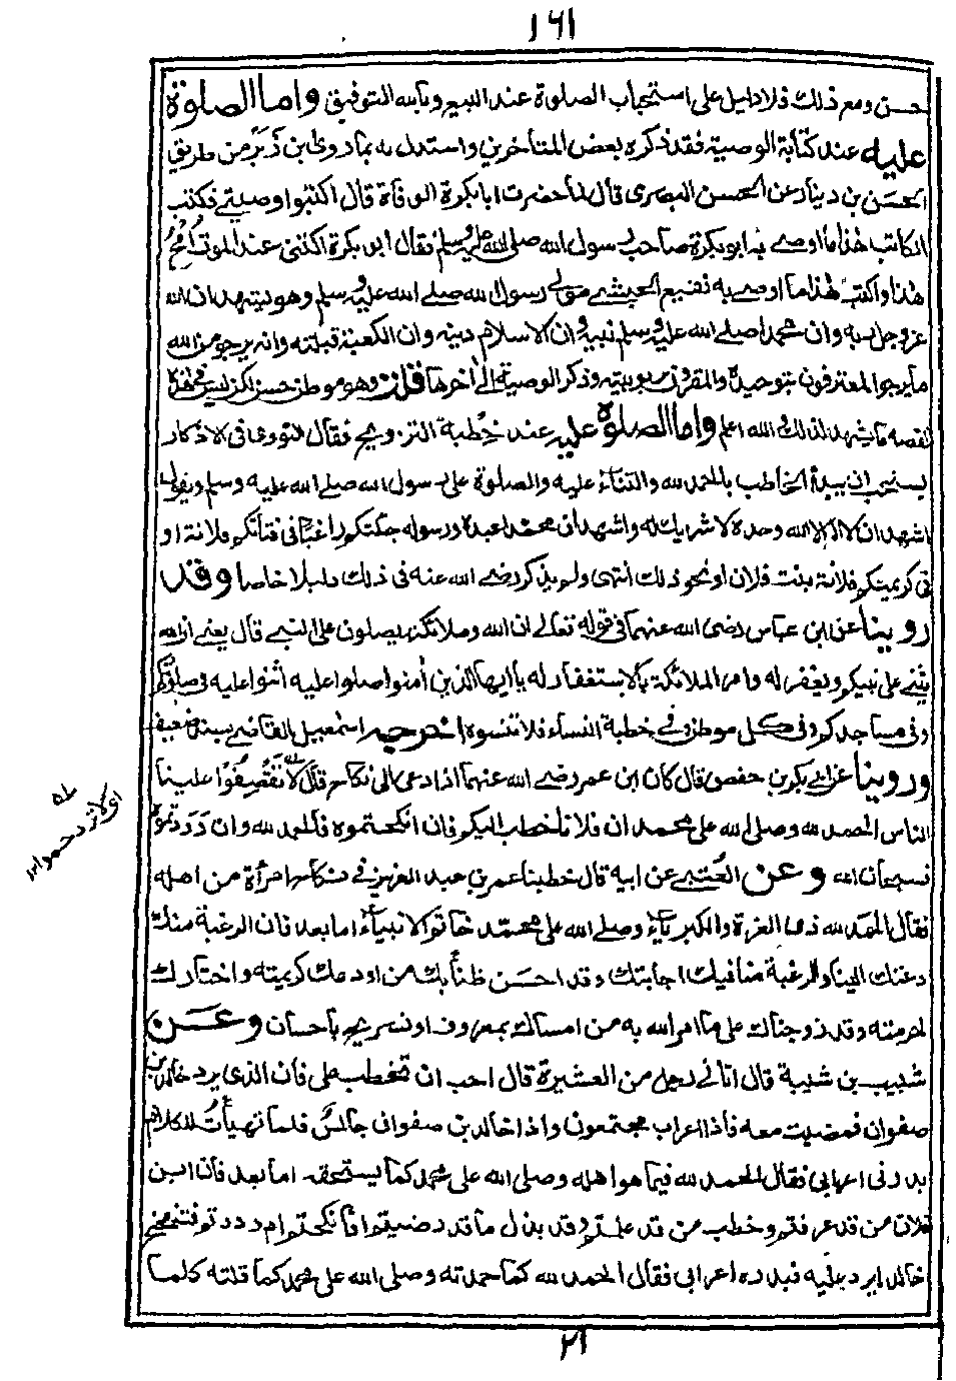 ١٦١
حسن ومع ذلك فلا دليل على استحباب الصلوة عند البيع وبالله التوفيق واما الصلوة
عليه عند كتابة الوصية فقد ذكره بعض المتأخرين واستدل له بما روى ابن زبر من طريق
الحسن بن دينار عن الحسن البصرى قال لما حضرت ابا بكرة الوفاة قال اكتبوا وصيتى فكتب
الكاتب هذا ما اوصى به ابو بكرة صاحب رسول الله صلى الله عليه وسلم فقال ابو بكرة اكتنى عند الموت امح
هذا واكتب هذا ما اوصى به نفيع الحبشى مولى رسول الله صلى الله عليه وسلم وهو يشهد ان الله
عز وجل ربه وان محمدا صلى الله عليه وسلم نبيه وان الاسلام دينه وان الكعبة قبلته وانه يرجو من الله
ما يرجو المعترفون بتوحيده والمقرون بربوبيته وذكر الوصية الى اخرها قلت وهو موطن حسن لكن ليس فى هذه
القصه ما يشهد لذلك والله اعلم واما الصلوة عليه عند خطبة التزويج فقال النووى فى الاذكار
يستحب ان يبدأ الخاطب بالحمد لله والثناء عليه والصلوة على رسول الله صلى الله عليه وسلم ويقول
اشهد ان لا اله الا الله وحده لا شريك له واشهد ان محمدا عبده ورسوله جئتكم راغبا فى فتاتكم فلانة او
فى كريمتكم فلانة بنت فلان او نحو ذلك انتهى ولم يذكر رضى الله عنه فى ذلك دليلا خاصا وقد
روينا عن ابن عباس رضى الله عنهما فى قوله تعالى ان الله وملائكته يصلون على النبى قال يعنى ان الله
يثنى على نبيكم ويغفر له وامر الملائكة بالاستغفار له يا ايها الذين امنوا صلوا عليه اثنوا عليه فى صلوتكم
وفى مساجدكم وفى كل موطن وفى خطبة النساء فلا تنسوه اخرجه اسمعيل القاضى بسند ضعيف
وروينا عن ابى بكر بن حفص قال كان ابن عمر رضى الله عنهما اذا دعى الى نكاح قال لا تقصفوا علينا
الناس الحمد لله وصلى الله على محمد ان فلانا خطب اليكم فان انكحتموه فالحمد لله وان رددتموه
فسبحان الله وعن العتبى عن ابيه قال خطبنا عمر بن عبد العزيز فى نكاح امرأة من اهله
فقال الحمد لله ذى العزة والكبرياء وصلى الله على محمد خاتم الانبياء اما بعد فان الرغبة منك
دعتك الينا والرغبة منا فيك اجابتك وقد احسن ظنا بك من اودعك كريمته واختارك
لحرمته وقد زوجناك على ما امر الله به من امساك بمعروف او تسريح باحسان وعن
شبيب بن شيبة قال اتانى رجل من العشيرة قال احب ان تخطب على فان الذى يرد خالد بن
صفوان فمضيت معه فاذا اعراب مجتمعون واذا خالد بن صفوان جالس فلما تهيأت للكلام
بدرنى اعرابى فقال الحمد لله فيما هو اهله وصلى الله على محمد كما يستحقه اما بعد فان ابن
فلان من قد عرفتم وخطب من قد علمتم وقد بذل ما قد رضيتم افانكحتم ام رددتم
خالد ليرد عليه فبدره اعرابى فقال الحمد لله كما حمدته وصلى الله على محمد كما قلته كلما
اى لا تزدحموا ١٢
٢١